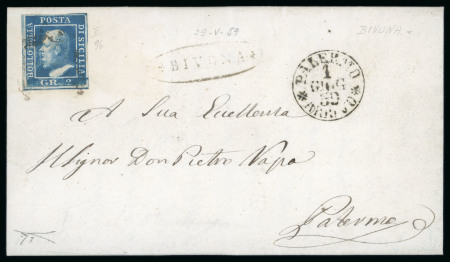 POSTA
DI SICILIA
BOLLO DELLA
GR. 2
29-V-59
BIVONA
BIVONA
PALERMO
1
GIUG
59
A Sua Eccellenza
Il Signor Don Pietro Vapa
Palermo